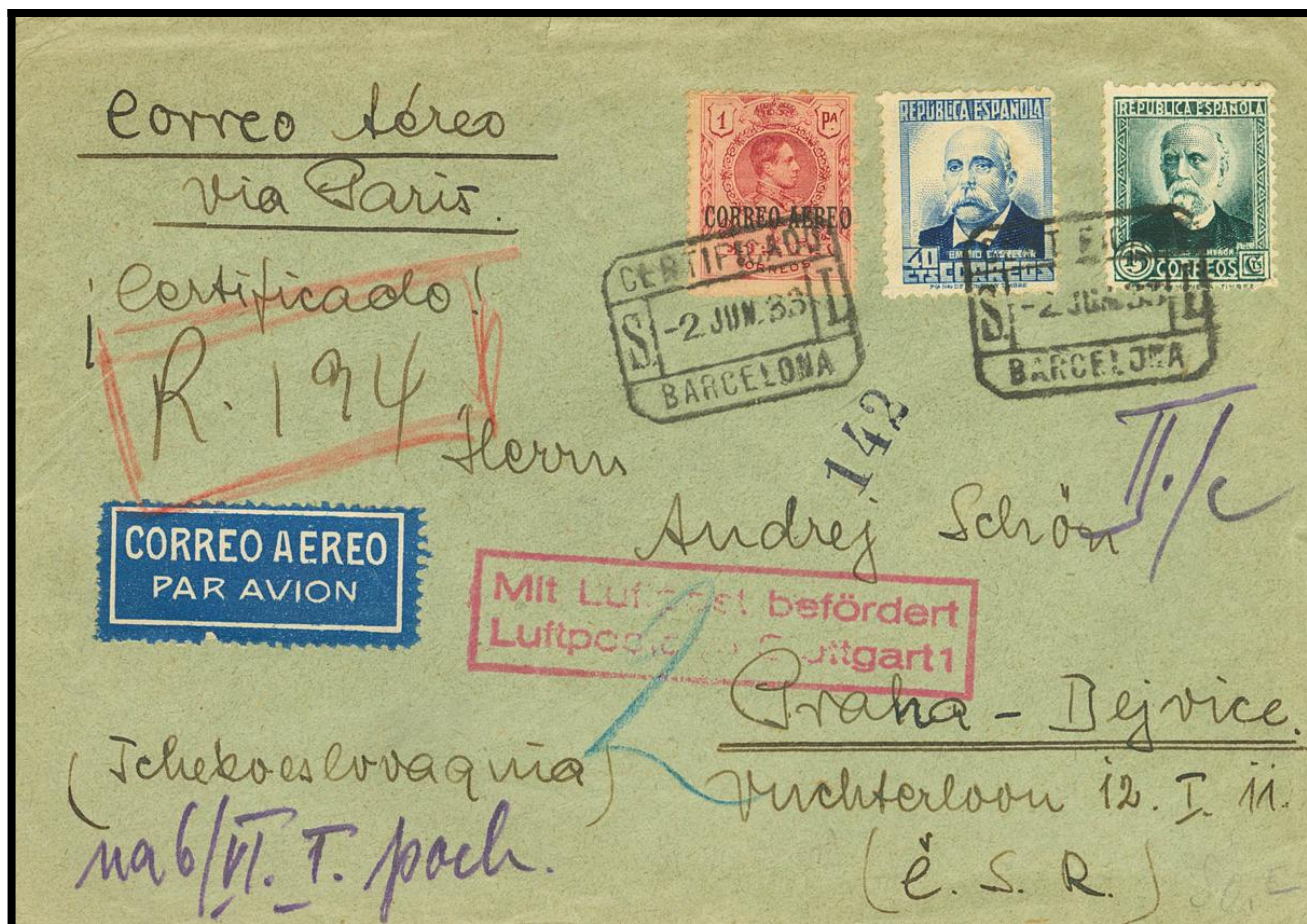 Correo Aéreo
via Paris.
Certificado!
R. 194
1 PA
CORREO AEREO
CORREOS
REPUBLICA ESPAÑOLA
40 CTS CORREOS
REPUBLICA ESPAÑOLA
15 CORREOS CTS
CERTIFICADO
S. -2 JUN. 33 L
BARCELONA
S. -2 JUN. 33 L
BARCELONA
142
II./c
Herrn
Andrej Schön
CORREO AEREO
PAR AVION
Mit Luftpost befördert
Luftpostamt Stuttgart 1
2
Praha - Dejvice.
(Tchekoeslovaquia)
Vuchterlova 12. I. 11.
na 6/VI. I. poch.
(Č. S. R.)